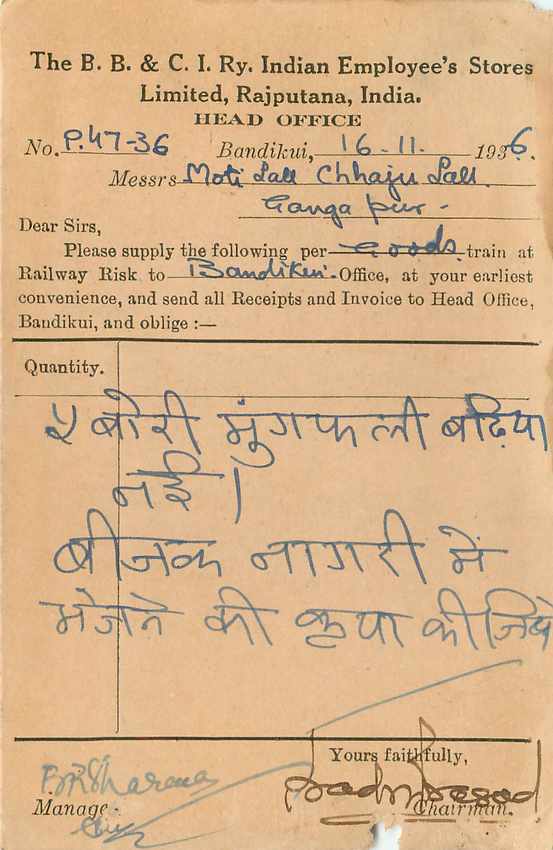 The B. B. & C. I. Ry. Indian Employee's Stores
Limited, Rajputana, India.
HEAD OFFICE
No. P.47-36 Bandikui, 16-11. 1936.
Messrs Moti Lall Chhaju Lall.
Gangapur-
Dear Sirs,
Please supply the following per Goods train at
Railway Risk to Bandikui Office, at your earliest
convenience, and send all Receipts and Invoice to Head Office,
Bandikui, and oblige :—
Quantity.
५ बोरी मुंगफली बढ़िया
नई।
बीजक नागरी में
भेजने की कृपा कीजिये
Yours faithfully,
BRSharma
Manage
Chairman.